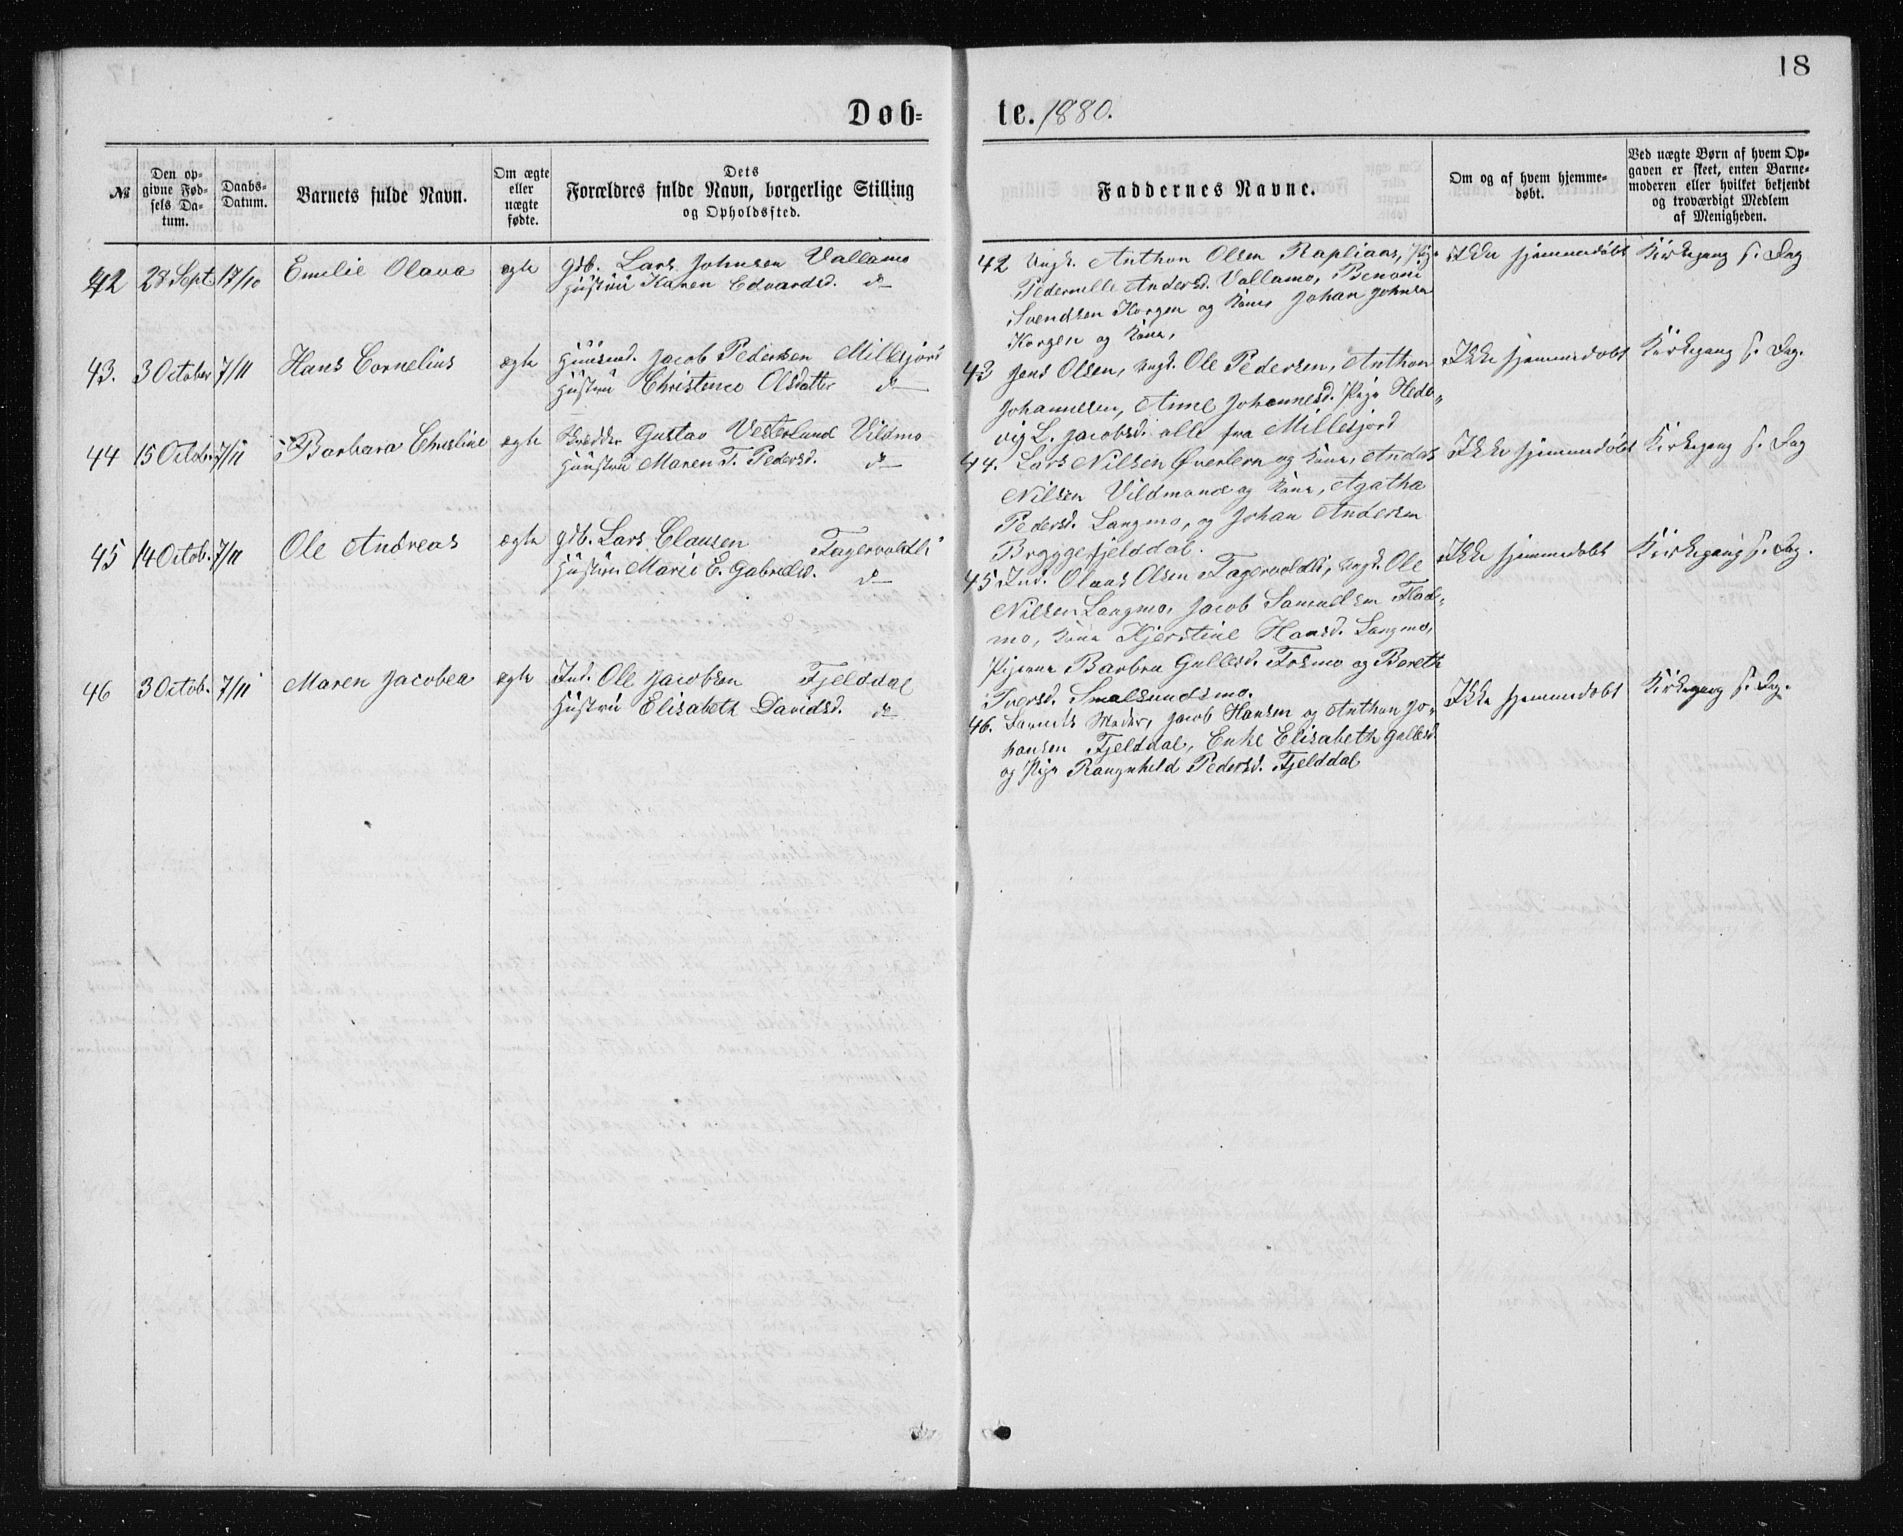 18
Døb= te. 1880.
№
Den op-
givne Fød-
sels Da-
tum.
Daabs-
Datum.
Barnets fulde Navn.
Om ægte
eller
uægte
fødte.
Dets
Forældres fulde Navn, borgerlige Stilling
og Opholdssted.
Faddernes Navne.
Om og af hvem hjemme-
døbt.
Ved uægte Børn af hvem Op-
gaven er skeet, enten Barne-
moderen eller hvilket bekjendt
og troværdigt Medlem
af Menigheden.
42 28 Sept. 17/10 Emilie Olava ægte Gdb. Lars Johnsen Vallamo
Hustru Karen Edvardsd. do
43. 3 October 7/11 Hans Cornelius ægte Huusmd. Jacob Pedersen Millesjord
Hustru Christence Olsdatter do
44 15 Octob. 7/11 Barbara Christine ægte Gustav Vesterlund Vildmo
Hustru Maren T. Pedersd. do
45 14 Octob. 7/11 Ole Andreas ægte Gdb. Lars Clausen Fagervoldli
Hustru Marie E. Gabrielsd. do
46 3 Octob. 7/11 Maren Jacobea ægte Ind. Ole Jacobsen Fjelddal
Hustru Elisabeth Davidsd. do
42 Ungk. Anthon Olsen Rapliaas, Pige
Pedernelle Andersd. Vallamo, Benoni
Svendsen Korgen og Kone, Johan Johnsen
Korgen og Kone,
43 Jens Olsen, Ungk. Ole Pedersen, Anthon
Johannesen, Anne Johannesd. Pige Hede-
vig L. Jacobsd. alle fra Millesjord
44. Lars Nilsen Øverlern og Kone, Andas
Nilsen Vildmone og Kone, Agatha
Pedersd. Langmo, og Johan Andersen
Bryggefjelddal.
45 Ind. Olaus Olsen Fagervoldli, Ungk. Ole
Nilsen Langmo, Jacob Samuelsen Flad-
mo, Kone Kjerstine Hansd. Langmo,
Pigerne Barbru Gullesd. Fosmo og Bereth
Iversd. Smalsundsmo.
46. Barnets Moder, Jacob Hansen og Anthon Jo-
hansen Fjelddal, Enke Elisabeth Gullesd.
og Pige Rangnhild Pedersd. Fjelddal
Ikke hjemmedøbt Kirkegang s. Dag
Ikke hjemmedøbt Kirkegang s. Dag.
Ikke hjemmedøbt Kirkegang s. Dag
Ikke hjemmedøbt Kirkegang s. Dag.
Ikke hjemmedøbt Kirkegang s. Dag.